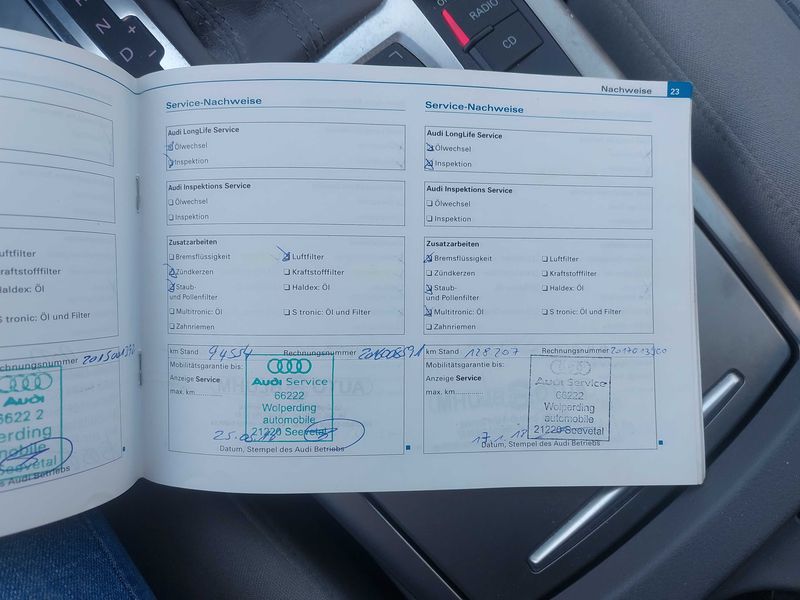 N
D
+
-
RADIO
CD
Nachweise 23
uftfilter
raftstofffilter
Haldex: Öl
S tronic: Öl und Filter
chnungsnummer
Audi
6622 2
erding
mobile
Seevetal
es Audi Betriebs
Service-Nachweise
Audi LongLife Service
Ölwechsel
Inspektion
Audi Inspektions Service
Ölwechsel
Inspektion
Zusatzarbeiten
Bremsflüssigkeit
Luftfilter
Zündkerzen
Kraftstofffilter
Staub-
und Pollenfilter
Haldex: Öl
Multitronic: Öl
S tronic: Öl und Filter
Zahnriemen
km Stand 94554 Rechnungsnummer
Mobilitätsgarantie bis:
Anzeige Service
max. km
Audi Service
66222
Wolperding
automobile
21220 Seevetal
Datum, Stempel des Audi Betriebs
Service-Nachweise
Audi LongLife Service
Ölwechsel
Inspektion
Audi Inspektions Service
Ölwechsel
Inspektion
Zusatzarbeiten
Bremsflüssigkeit
Luftfilter
Zündkerzen
Kraftstofffilter
Staub-
und Pollenfilter
Haldex: Öl
Multitronic: Öl
S tronic: Öl und Filter
Zahnriemen
km Stand 128207 Rechnungsnummer
Mobilitätsgarantie bis:
Anzeige Service
max. km
Audi Service
66222
Wolperding
automobile
21220 Seevetal
Datum, Stempel des Audi Betriebs